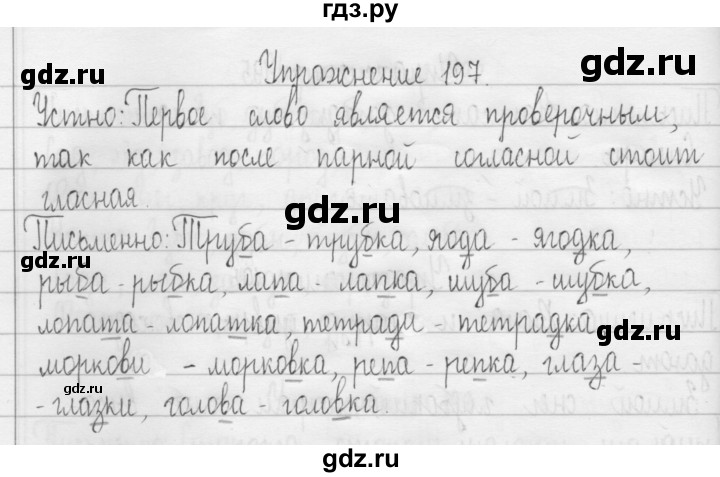 гдз.ру
Упражнение 197.
Устно: Первое слово является проверочным,
так как после парной согласной стоит
гласная.
Письменно: Труба - трубка, ягода - ягодка,
рыба - рыбка, лапа - лапка, шуба - шубка,
лопата - лопатка, тетради - тетрадка
моркови - морковка, репа - репка, глаза -
- глазки, голова - головка.
gdz.ru
gdz.ru
gdz.ru
gdz.ru
gdz.ru
gdz.ru
gdz.ru
gdz.ru
gdz.ru